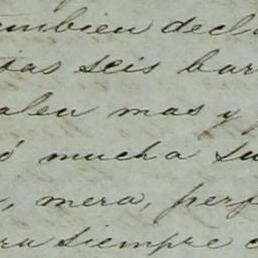 tambien decl
tas seis bar
alen mas y
ó mucha su
, mera, perf
ra siempre